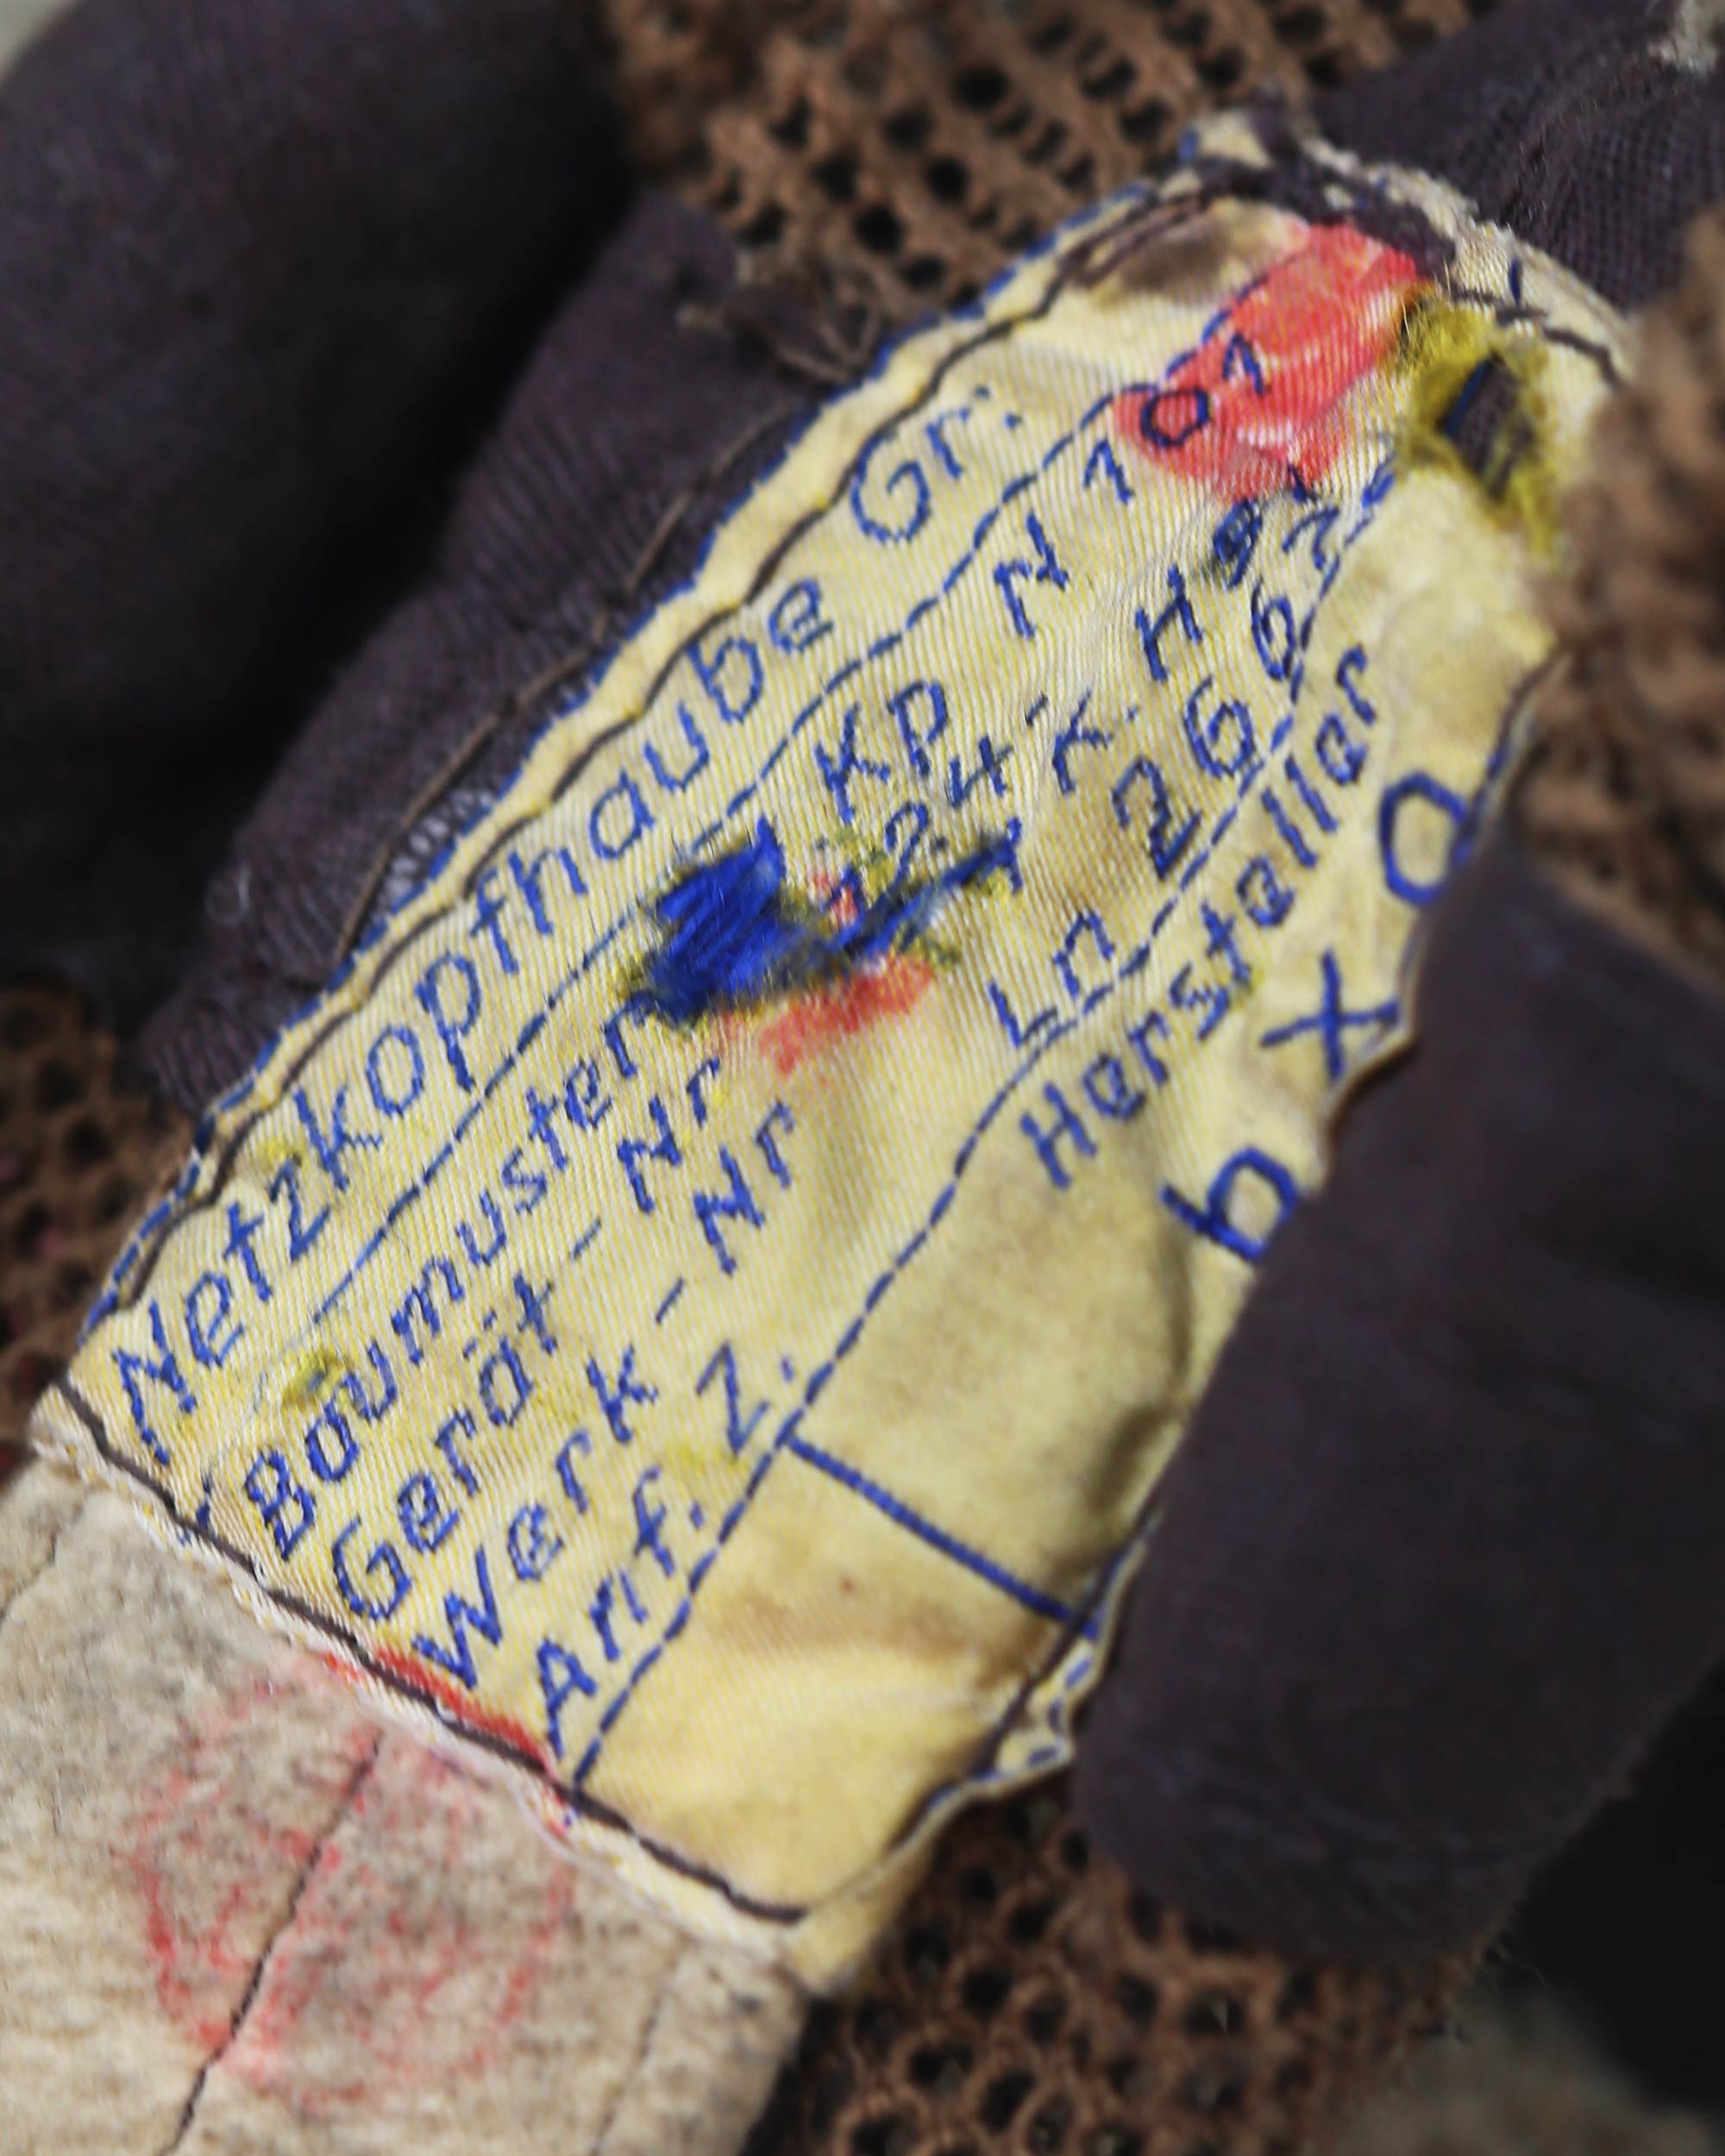 Netzkopfhaube Gr:
Baumuster KP N 101
Gerät-Nr
Werk-Nr
Anf. Z. Ln
Hersteller
bxo